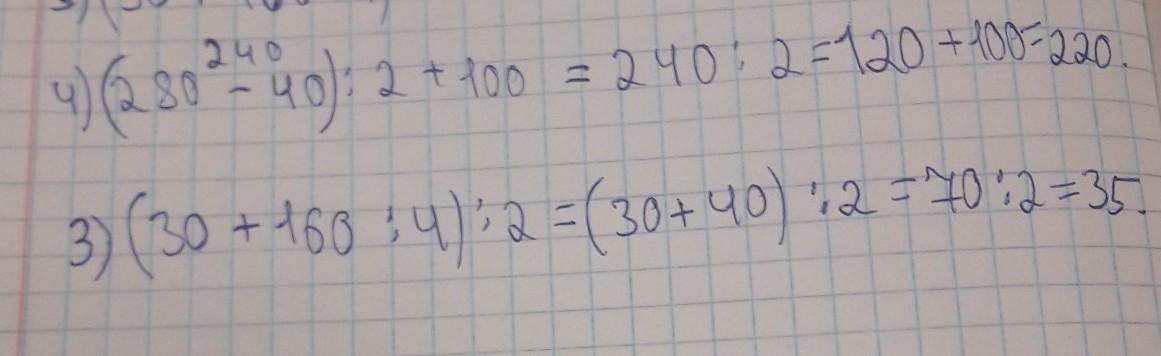 240
4) (280 - 40) : 2 + 100 = 240 : 2 = 120 + 100 = 220.
3) (30 + 160 : 4) : 2 = (30 + 40) : 2 = 70 : 2 = 35.